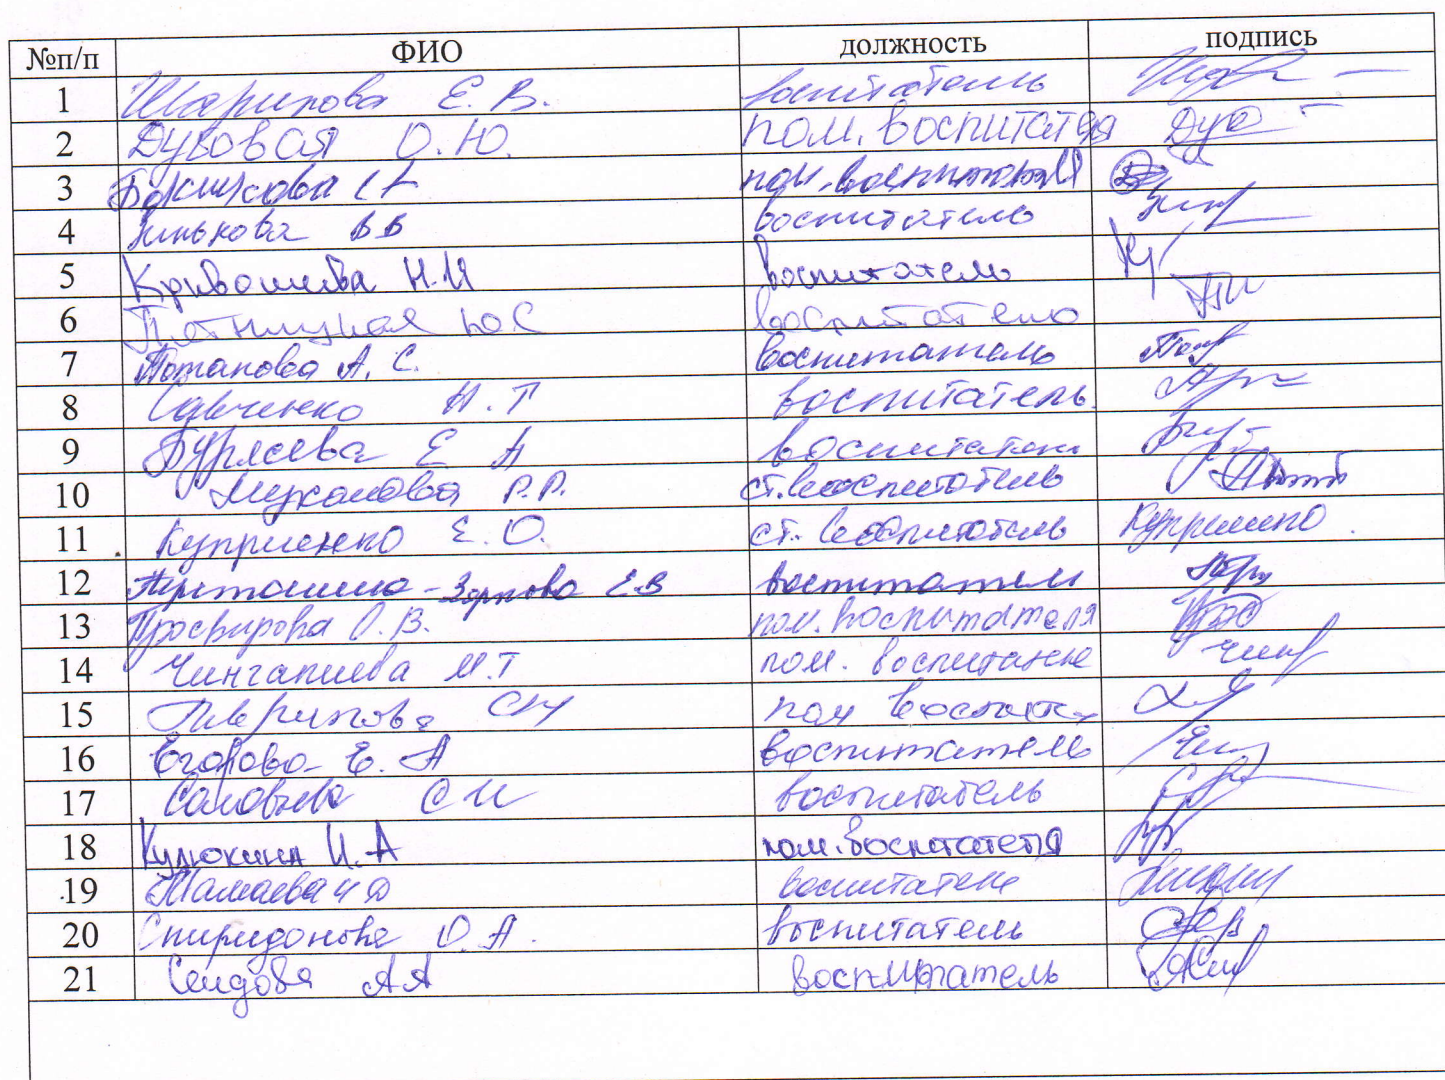 №п/п ФИО должность подпись
1 Шарипова Е. В. воспитатель
2 Дубовая О. Ю. пом. воспитателя
3 пом. воспитателя
4 Зинькова В В воспитатель
5 Кривошеева Н. И воспитатель
6 Пятницкая Ю С воспитатель
7 Потапова А. С. воспитатель
8 Савченко Н. Г воспитатель.
9 Буряева Е А воспитатель
10 Мужанова Р. Р. ст. воспитатель
11 Куприенко Е. О. ст. воспитатель Куприенко
12 воспитатель
13 Просвирова О. В. пом. воспитателя
14 Чингалиева М. Т пом. воспитателя
15 пом
16 Егорова Е. А воспитатель
17 Соловьева С И воспитатель
18 Кулюкина И. А пом. воспитателя
19 Мамаева воспитатель
20 Спиридонова О. А. воспитатель
21 Сеидова А А воспитатель